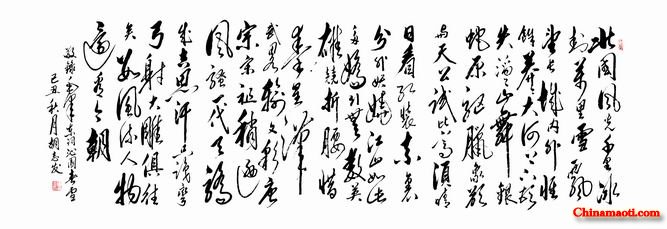 北国风光千里冰
封万里雪飘
望长城内外惟
馀莽莽大河上下顿
失滔滔山舞银
蛇原驰腊象欲
与天公试比高须晴
日看红装素裹
分外妖娆江山如此
多娇引无数英
雄竞折腰惜
秦皇汉
武略输文彩唐
宗宋祖稍逊
风骚一代天骄
成吉思汗只识弯
弓射大雕俱往
矣数风流人物
还看今朝
敬录毛泽东词沁园春雪
己丑秋月胡志发
Chinamaoti.com